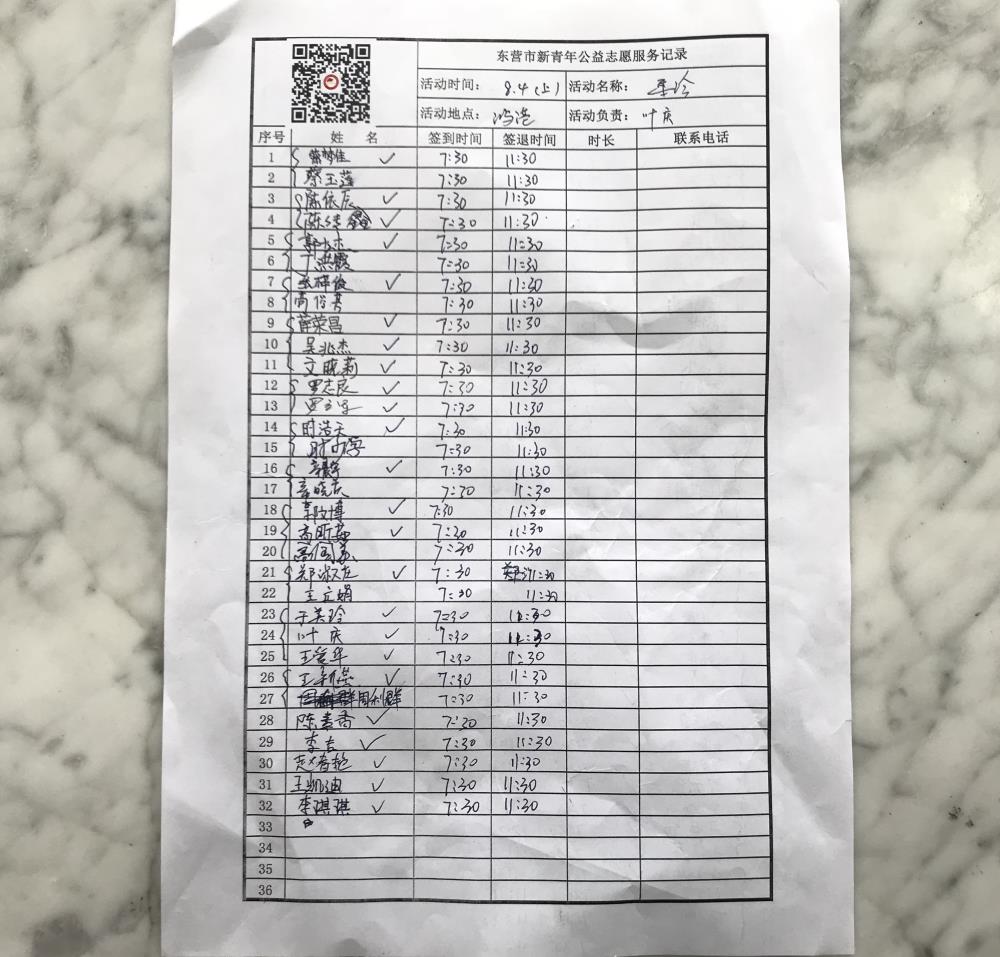 东营市新青年公益志愿服务记录
活动时间： 8.4(上) 活动名称：
活动地点： 活动负责： 叶庆
序号 姓 名 签到时间 签退时间 时长 联系电话
1 ✓ 7:30 11:30
2 蔡玉莲 7:30 11:30
3 陈依辰 ✓ 7:30 11:30
4 ✓ 7:30 11:30
5 ✓ 7:30 11:30
6 丁洪霞 7:30 11:30
7 ✓ 7:30 11:30
8 7:30 11:30
9 薛荣昌 ✓ 7:30 11:30
10 吴兆杰 ✓ 7:30 11:30
11 文晓莉 ✓ 7:30 11:30
12 罗志辰 ✓ 7:30 11:30
13 ✓ 7:30 11:30
14 时浩天 ✓ 7:30 11:30
15 7:30 11:30
16 ✓ 7:30 11:30
17 7:30 11:30
18 ✓ 7:30 11:30
19 ✓ 7:30 11:30
20 7:30 11:30
21 ✓ 7:30 11:30
22 王立娟 7:30 11:30
23 于美玲 ✓ 7:30 11:30
24 叶庆 ✓ 7:30 11:30
25 王爱华 ✓ 7:30 11:30
26 ✓ 7:30 11:30
27 周利群 7:30 11:30
28 陈春香 ✓ 7:30 11:30
29 李吉 ✓ 7:30 11:30
30 赵春艳 ✓ 7:30 11:30
31 王凯迪 ✓ 7:30 11:30
32 李琪琪 ✓ 7:30 11:30
33
34
35
36